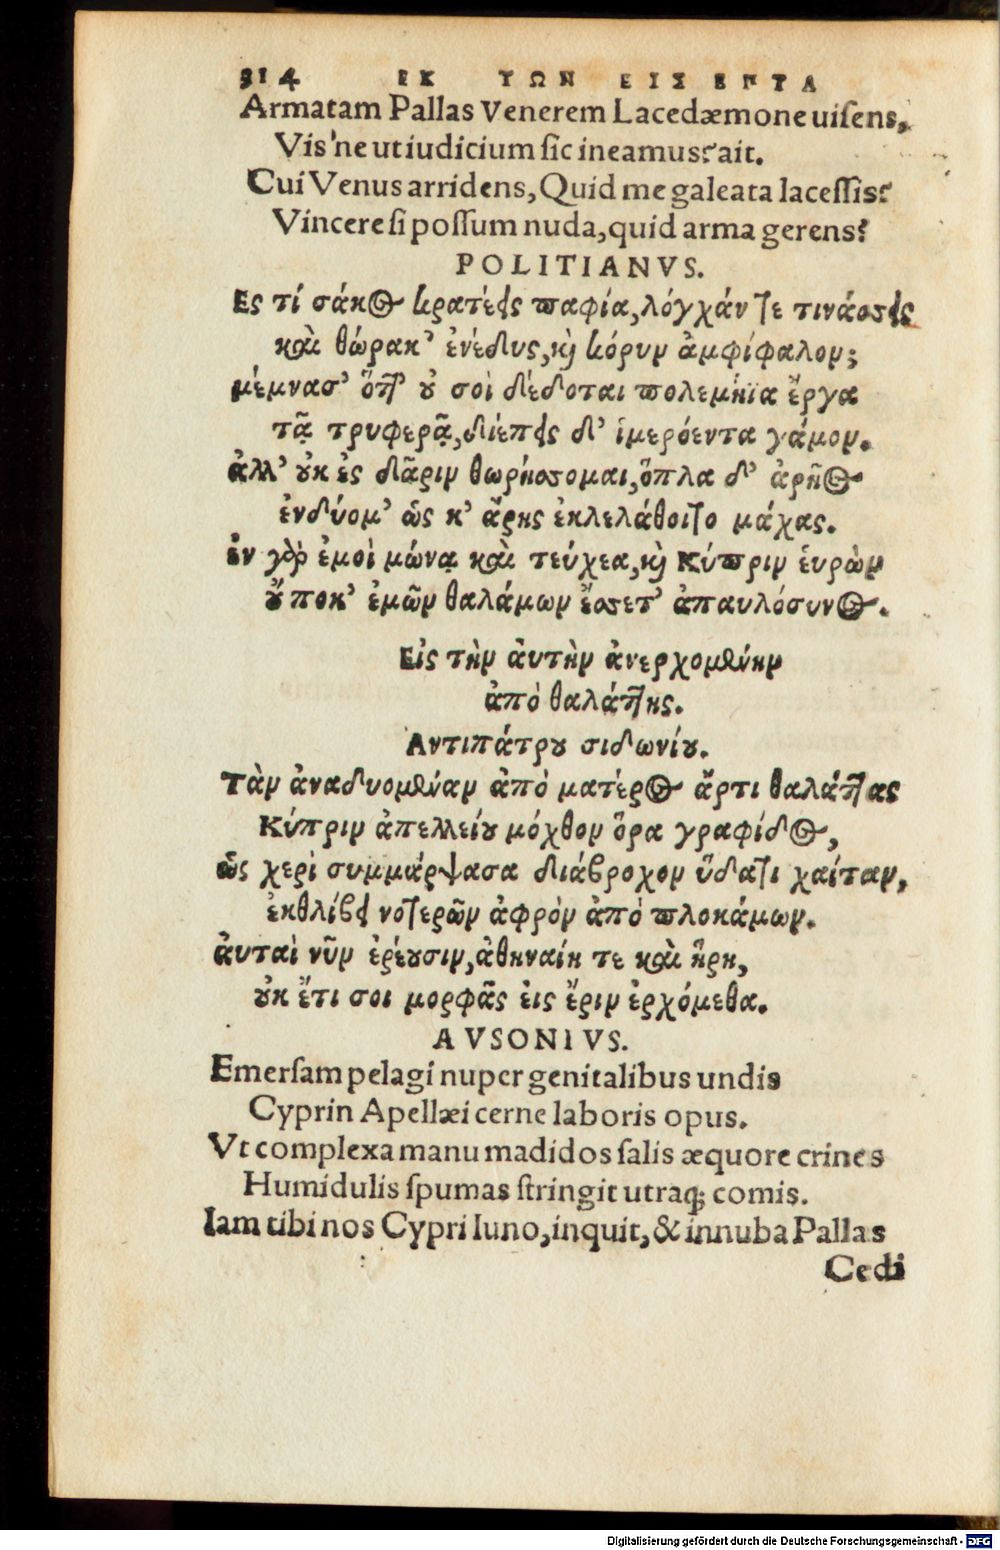 314 ΕΚ ΤΩΝ ΕΙΣ ΕΠΤΑ
Armatam Pallas Venerem Lacedæmone uiſens,
Vis'ne ut iudicium ſic ineamus? ait.
Cui Venus arridens, Quid me galeata laceſſis?
Vincere ſi poſſum nuda, quid arma gerens?
POLITIANVS.
Ες τί σάκος κρατέεις παφία, λόγχάν τε τινάσσεις
καὶ θώρακ' ἐνέδυς, καὶ κόρυν ἀμφίφαλον;
μέμνασ' ὅττ' οὐ σοὶ δέδοται πολεμήϊα ἔργα
τᾷ τρυφερᾷ, δίεπεις δ' ἱμερόεντα γάμον.
ἀλλ' οὐκ ἐς δᾶριν θωρήσσομαι, ὅπλα δ' ἀρῆος
ἐνδύομ' ὡς κ' ἄρης ἐκλελάθοιτο μάχας.
ἐν γὰρ ἐμοὶ μώνᾳ καὶ τεύχεα, καὶ Κύπριν ἑυρὼν
οὔποκ' ἐμῶν θαλάμων ἔσσετ' ἀπαυλόσυνος.
Εἰς τὴν ἀυτὴν ἀνερχομένην
ἀπὸ θαλάττης.
Αντιπάτρου σιδωνίου.
Τὰν ἀναδυομέναν ἀπὸ ματέρος ἄρτι θαλάττας
Κύπριν ἀπελλείου μόχθον ὅρα γραφίδος,
ὡς χερὶ συμμάρψασα διάβροχον ὕδατι χαίταν,
ἐκθλίβει νοτερῶν ἀφρὸν ἀπὸ πλοκάμων.
ἀυταὶ νῦν ἐρέουσιν, ἀθηναίη τε καὶ ἥρη,
οὐκ ἔτι σοι μορφᾶς ἐις ἔριν ἐρχόμεθα.
AVSONIVS.
Emerſam pelagi nuper genitalibus undis
Cyprin Apellæi cerne laboris opus.
Vt complexa manu madidos ſalis æquore crines
Humidulis ſpumas ſtringit utraq; comis.
Iam tibi nos Cypri Iuno, inquit, & innuba Pallas
Cedi
Digitalisierung gefördert durch die Deutsche Forschungsgemeinschaft - DFG